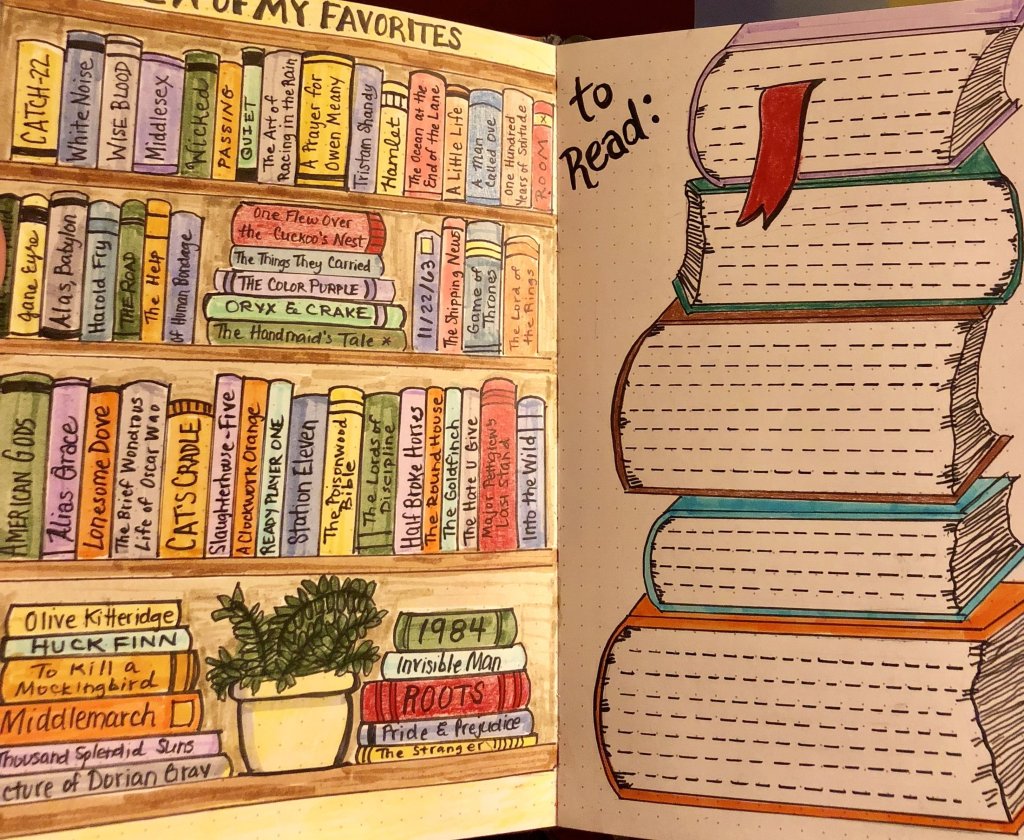 OF MY FAVORITES
CATCH-22
White Noise
WISE BLOOD
Middlesex
Wicked
PASSING
QUIET
The Art of
Racing in the Rain
A Prayer for
Owen Meany
Tristam Shandy
Hamlet
The Ocean at the
End of the Lane
A Little Life
A Man
Called Ove
One Hundred
Years of Solitude
ROOM
Jane Eyre
Alas, Babylon
Harold Fry
THE ROAD
The Help
Of Human Bondage
One Flew Over
the Cuckoo's Nest
The Things They Carried
THE COLOR PURPLE
ORYX & CRAKE
The Handmaid's Tale
11/22/63
The Shipping News
Game of
Thrones
The Lord of
the Rings
AMERICAN GODS
Alias Grace
Lonesome Dove
The Brief Wondrous
Life of Oscar Wao
CAT'S CRADLE
Slaughterhouse-Five
A Clockwork Orange
READY PLAYER ONE
Station Eleven
The Poisonwood
Bible
The Lords of
Discipline
Half Broke Horses
The Round House
The Goldfinch
The Hate U Give
Major Pettigrew's
Last Stand
Into the Wild
Olive Kitteridge
HUCK FINN
To Kill a
Mockingbird
Middlemarch
Thousand Splendid Suns
cture of Dorian Gray
1984
Invisible Man
ROOTS
Pride & Prejudice
The Stranger
to
Read: